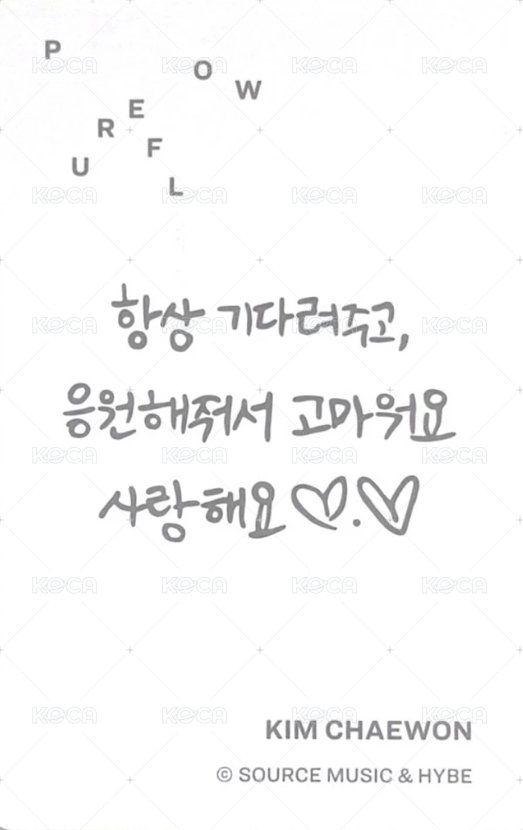 PUREFLOW
항상 기다려주고,
응원해줘서 고마워요
사랑해요♡.♡
KIM CHAEWON
© SOURCE MUSIC & HYBE
KOCA